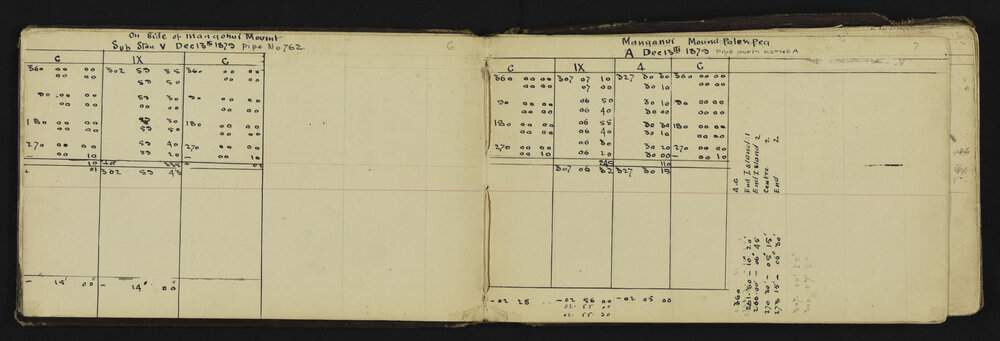 On Side of Mangonui Mount
Sub Stan V Dec 13th 1879 Pipe No 762
6
C IX C
360 00 00 302 59 55 360 00 00
00 00 59 50 00 00
90 00 00 59 30 90 00 00
00 00 00 00 00 00
180 00 00 30 180 00 00
00 00 59 50 00 00
270 00 00 59 40 270 00 00
— 00 10 59 20 — 00 10
10
01 302 59 43
- 15' 00" - 14' 00"
Manganui Mound Pole & Peg
A Dec 13th 1879
7
C IX 4 C
360 00 00 307 07 10 327 30 30 360 00 00
00 00 07 00 30 10 00 00
90 00 00 06 50 30 10 90 00 00
00 00 06 40 30 00 00 00
180 00 00 06 55 30 30 180 00 00
00 00 06 40 30 10 00 00
270 00 00 06 30 30 20 270 00 00
00 10 06 20 30 00 — 00 10
245 110
307 06 32 327 30 15
-02 25 -02 56 00 -02 05 00
02 55 00
02 55 30
360 A.C
261-30-10-20 End Island 1
260 00' 06' 45 End Island 2
270 30'-05' 15' Centre 2
273 15'-00' 30 End 2